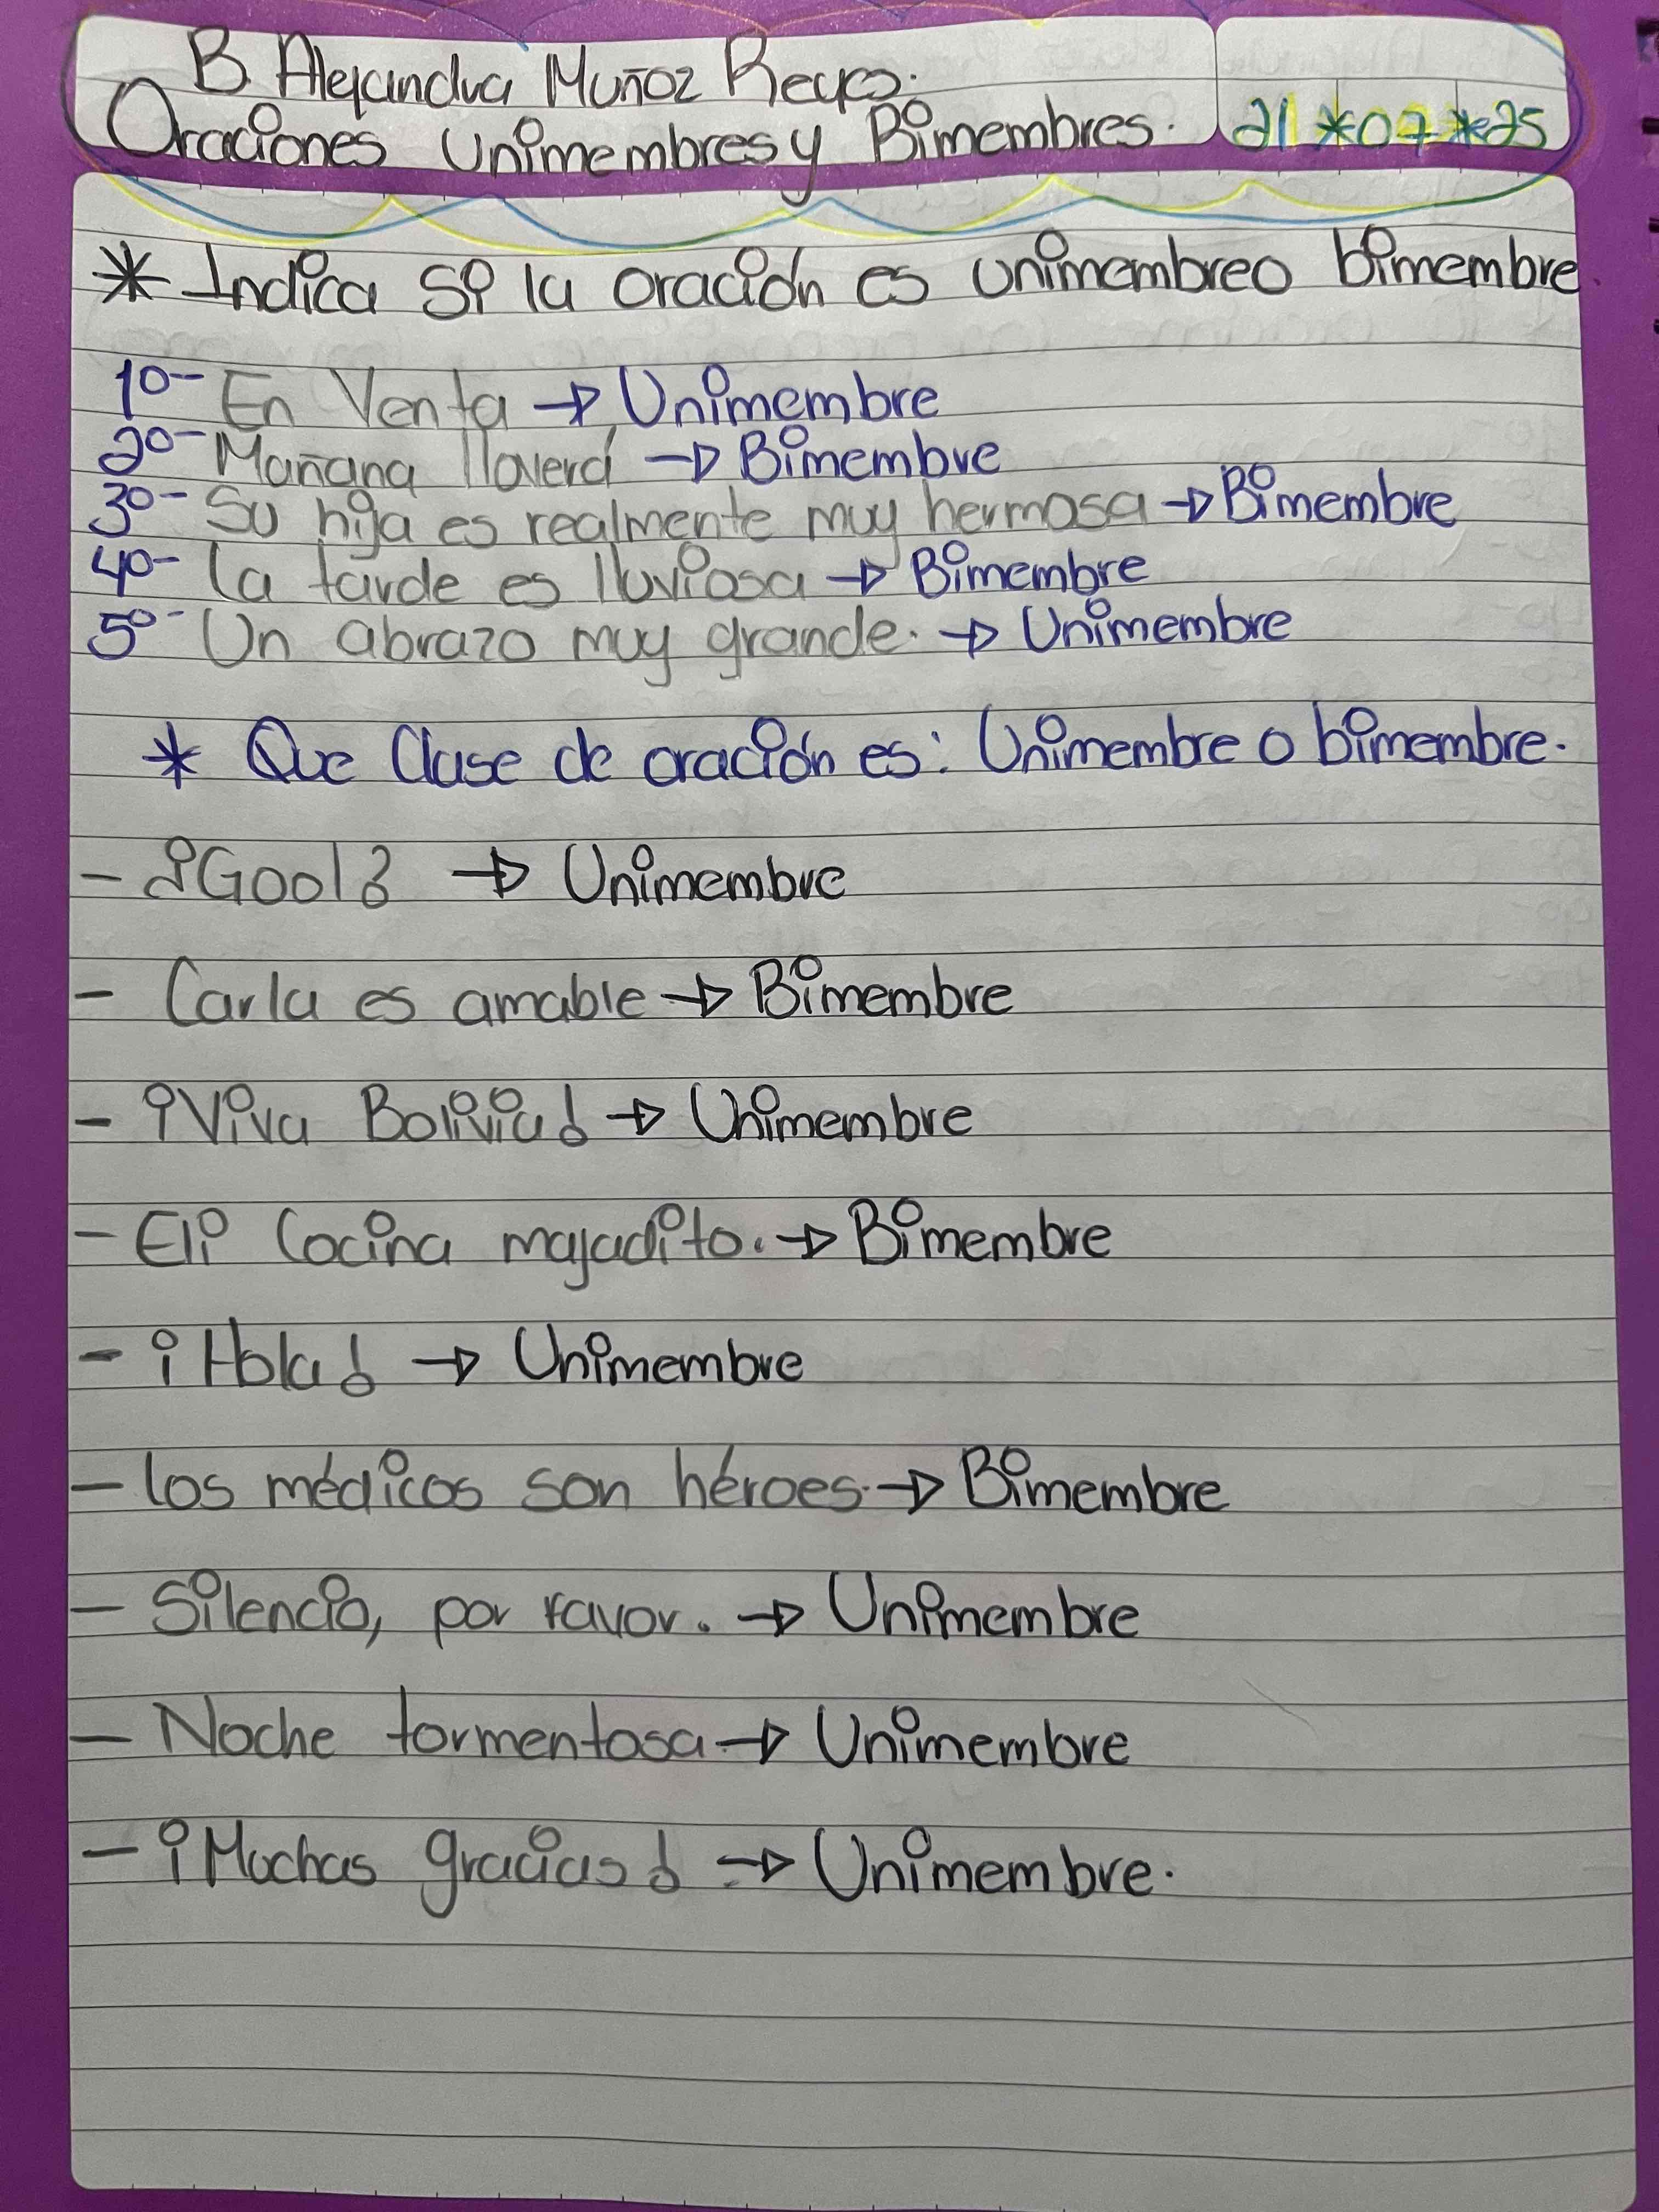 B. Alejandra Muñoz Reyes.
Oraciones Unimembres y Bimembres.
21*07*25
* Indica si la oración es unimembre o bimembre.
1o- En Venta → Unimembre
2o- Mañana lloverá → Bimembre
3o- Su hija es realmente muy hermosa → Bimembre
4o- La tarde es lluviosa → Bimembre
5o- Un abrazo muy grande. → Unimembre
* Que Clase de oración es: Unimembre o bimembre.
- ¡Gool! → Unimembre
- Carla es amable → Bimembre
- ¡Viva Bolivia! → Unimembre
- Eli Cocina majadito. → Bimembre
- ¡Hola! → Unimembre
- Los médicos son héroes. → Bimembre
- Silencio, por favor. → Unimembre
- Noche tormentosa → Unimembre
- ¡Muchas gracias! → Unimembre.